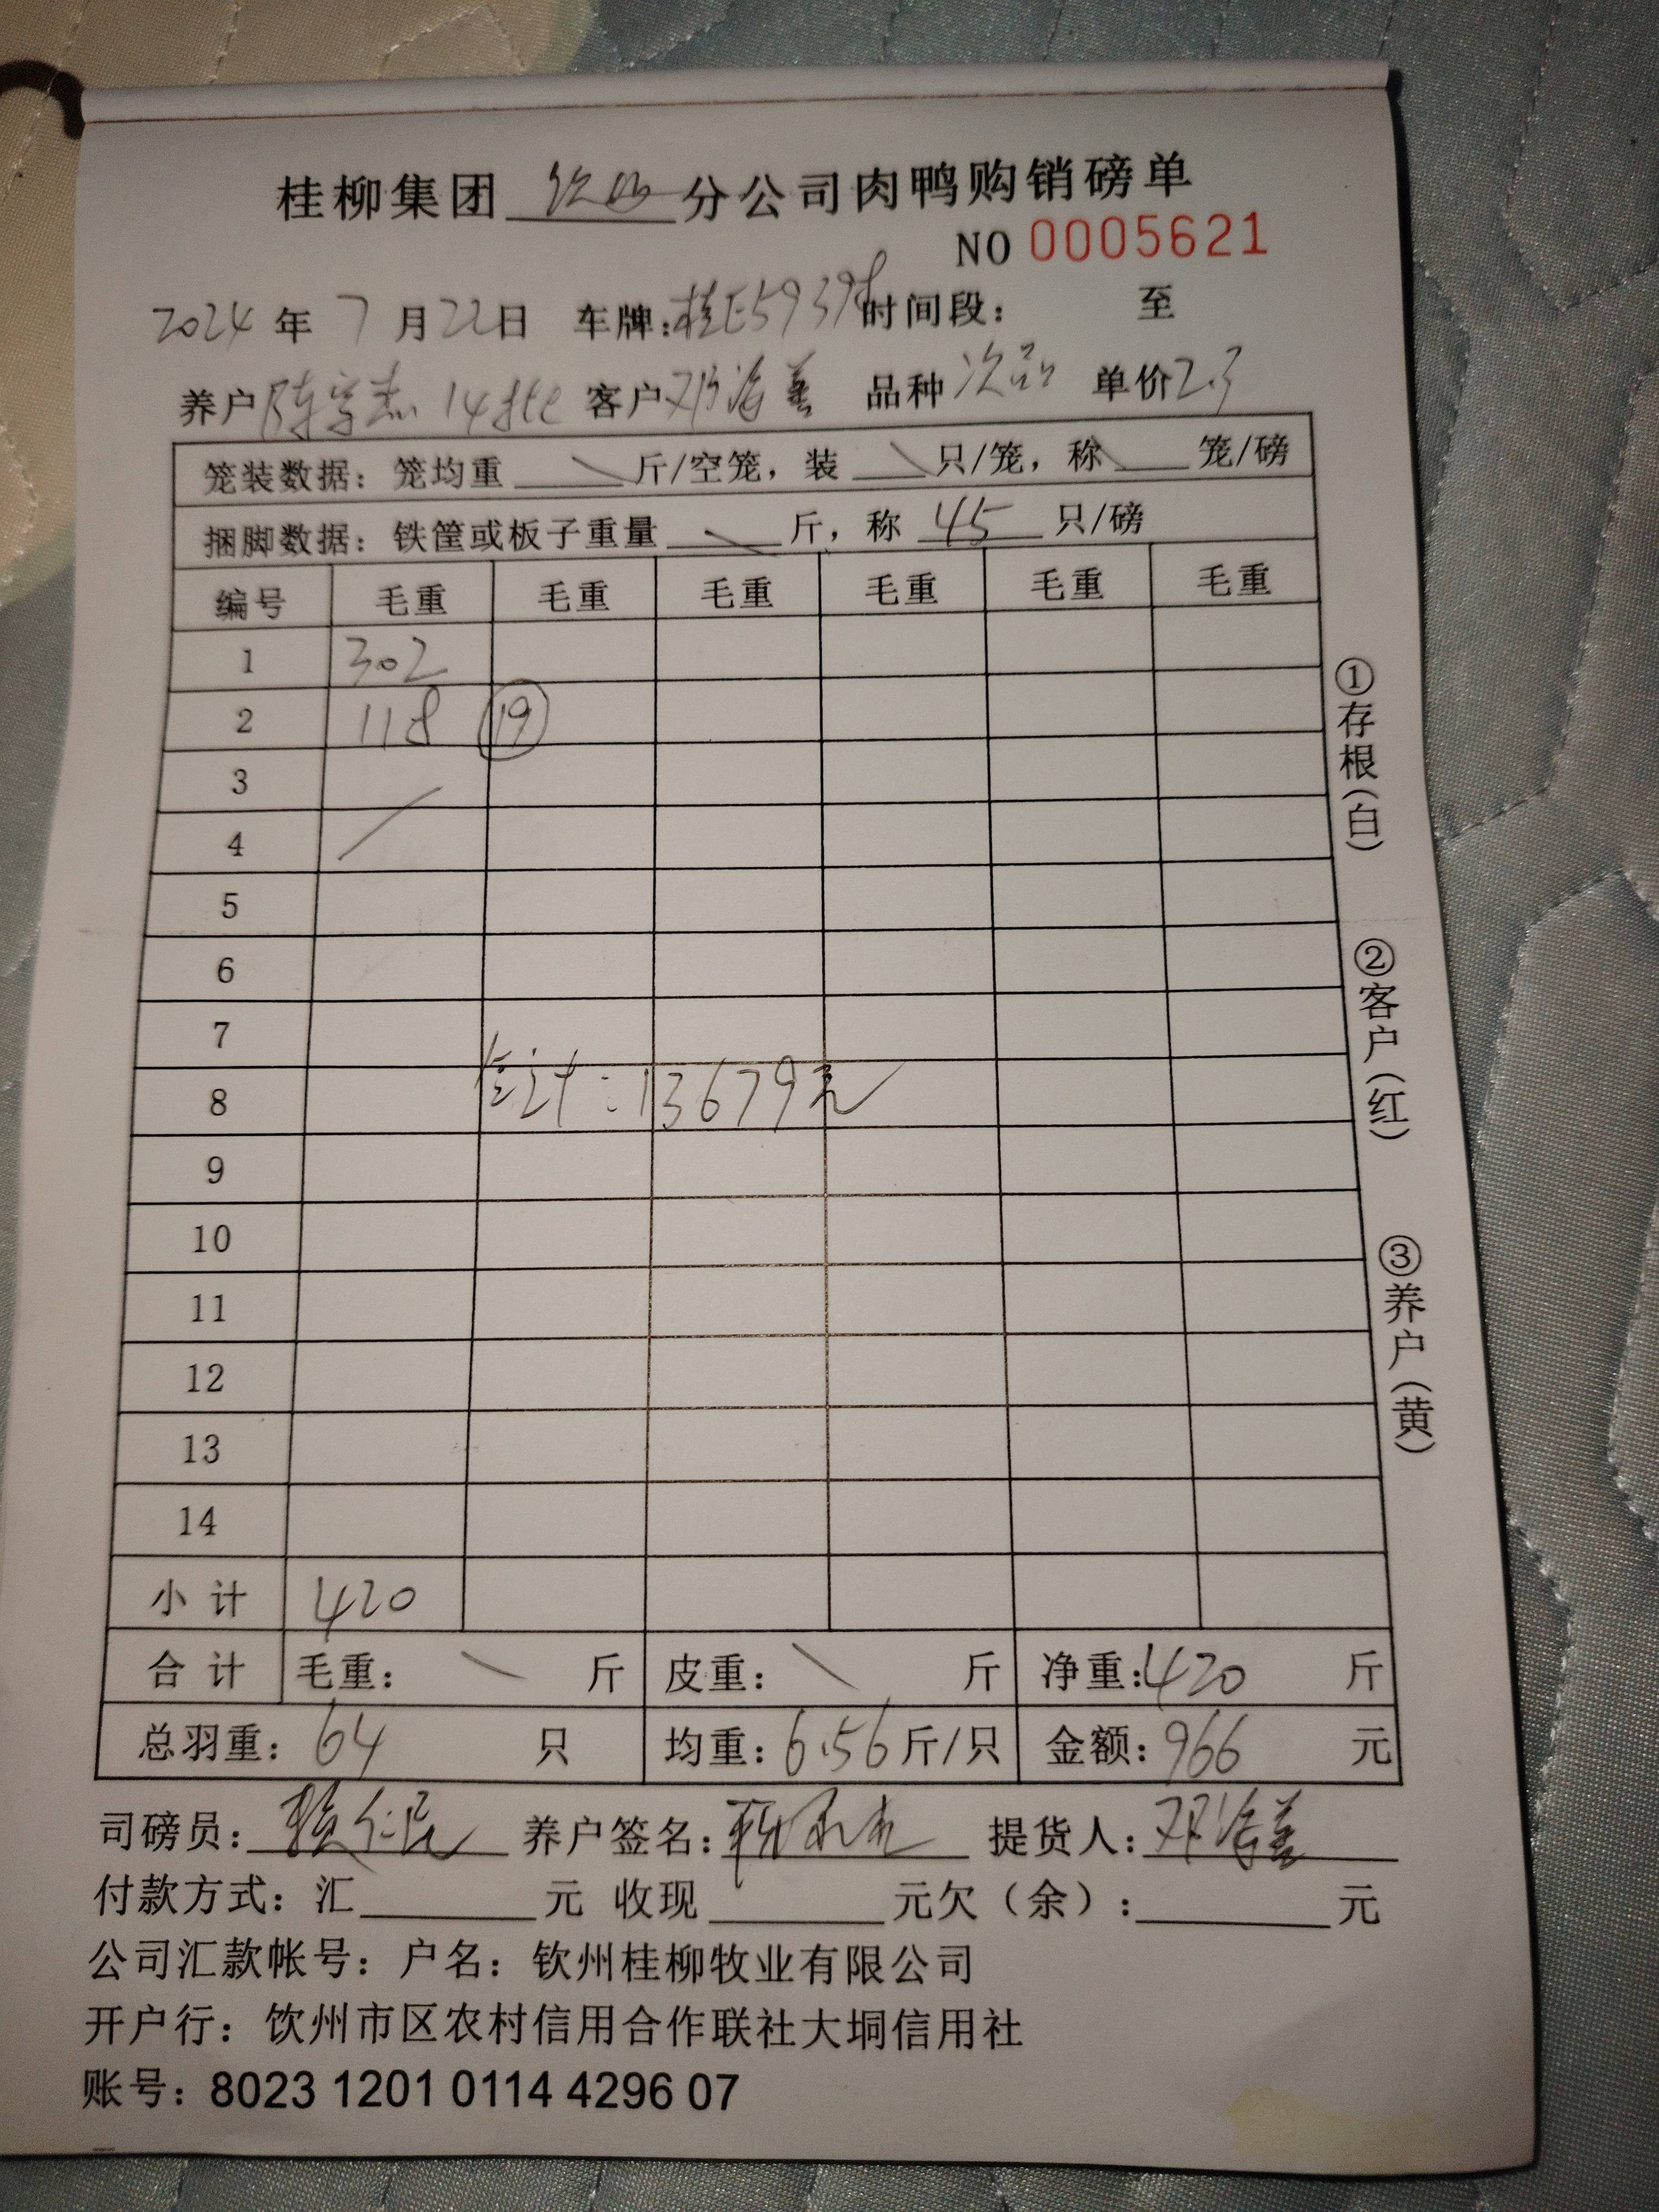 桂柳集团 钦州 分公司肉鸭购销磅单
NO 0005621
2024 年 7 月 22 日 车牌: 桂E5939 时间段: 至
养户 陈字杰 14批 客户 邓海善 品种 次品 单价 2.3
笼装数据: 笼均重 \ 斤/空笼, 装 \ 只/笼, 称 \ 笼/磅
捆脚数据: 铁筐或板子重量 \ 斤, 称 45 只/磅
编号 毛重 毛重 毛重 毛重 毛重 毛重
1 302
2 118 ⑲
3
4
5
6
7
8 合计: 13679元
9
10
11
12
13
14
小计 420
合计 毛重: \ 斤 皮重: \ 斤 净重: 420 斤
总羽重: 64 只 均重: 6.56 斤/只 金额: 966 元
司磅员: 赖仁民 养户签名: 提货人: 邓海善
付款方式: 汇 元 收现 元欠（余）: 元
公司汇款帐号: 户名: 钦州桂柳牧业有限公司
开户行: 饮州市区农村信用合作联社大垌信用社
账号: 8023 1201 0114 4296 07
①存根(白)
②客户(红)
③养户(黄)